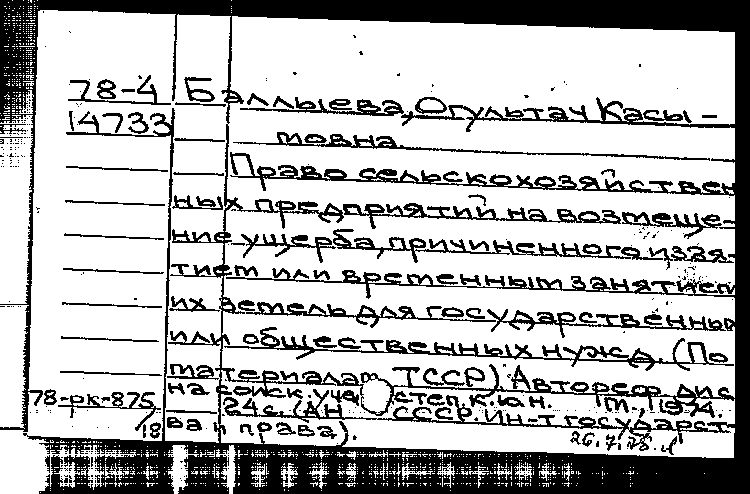 78-4 Баллыева, Огультач Касы-
14733 мовна.
Право сельскохозяйствен
ных предприятий на возмеще-
ние ущерба, причиненного изъя-
тием или временным занятием
их земель для государственных
или общественных нужд. (По
материалам ТССР). Автореф. дис
на соиск. уч. степ. к.ю.н. М., 1974.
78-рк-875 24 с. (АН СССР. Ин-т государст-
18 ва и права).
26.7.78.